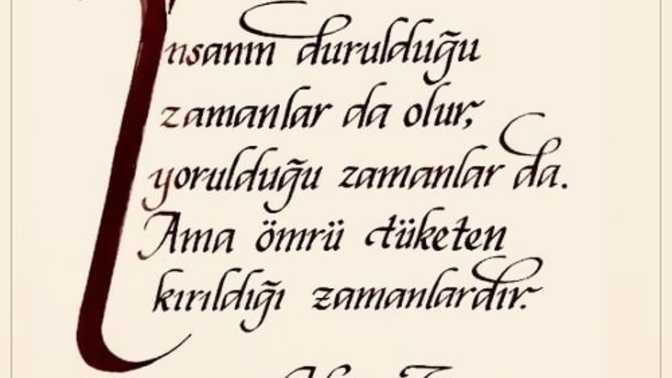 İnsanın durulduğu
zamanlar da olur,
yorulduğu zamanlar da.
Ama ömrü tüketen
kırıldığı zamanlardır.